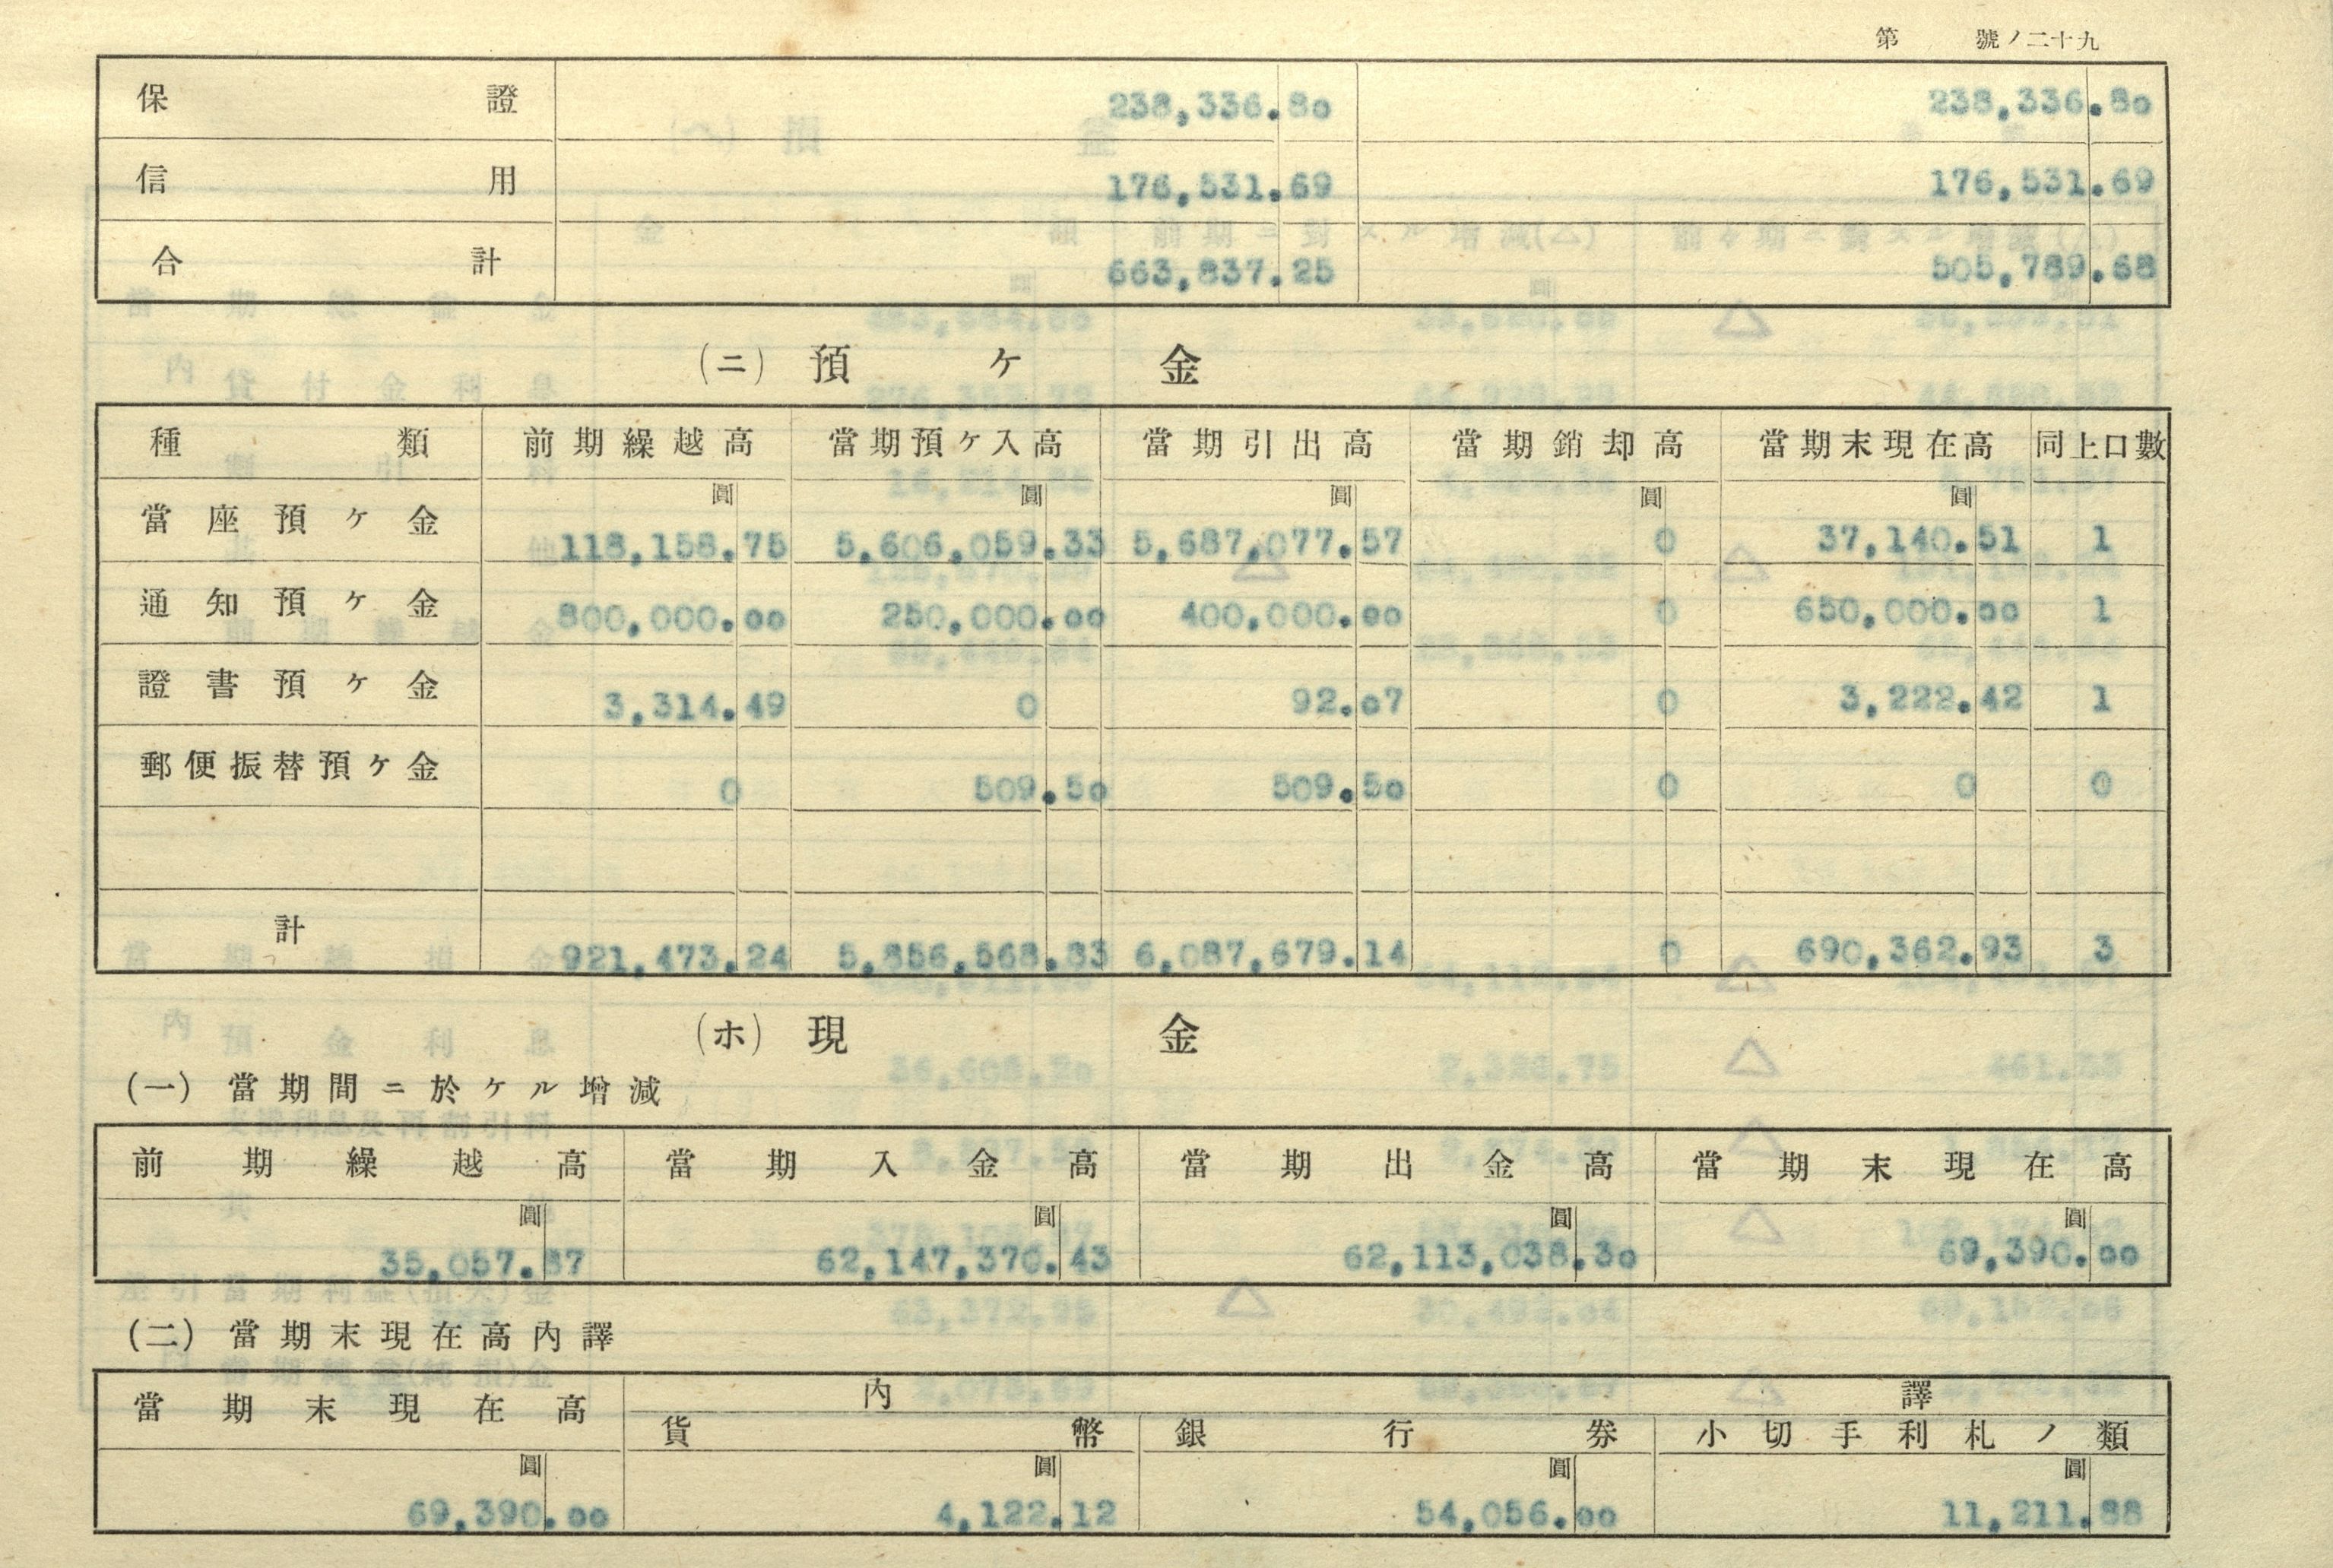 第 號ノ二十九
保證 238,336.80 238,336.80
信用 176,531.69 176,531.69
合計 663,837.25 505,789.68
(ニ) 預ケ金
種類 前期繰越高 當期預ケ入高 當期引出高 當期銷却高 當期末現在高 同上口數
圓 圓 圓 圓 圓
當座預ケ金 118,158.75 5,606,059.33 5,687,077.57 0 37,140.51 1
通知預ケ金 800,000.00 250,000.00 400,000.00 0 650,000.00 1
證書預ケ金 3,314.49 0 92.07 0 3,222.42 1
郵便振替預ケ金 0 509.50 509.50 0 0 0
計 921,473.24 5,856,568.83 6,087,679.14 0 690,362.93 3
(ホ) 現金
(一) 當期間ニ於ケル增減
前期繰越高 當期入金高 當期出金高 當期末現在高
圓 圓 圓 圓
35,057.87 62,147,370.43 62,113,038.30 69,390.00
(二) 當期末現在高內譯
當期末現在高 內譯
貨幣 銀行券 小切手利札ノ類
圓 圓 圓 圓
69,390.00 4,122.12 54,056.00 11,211.88